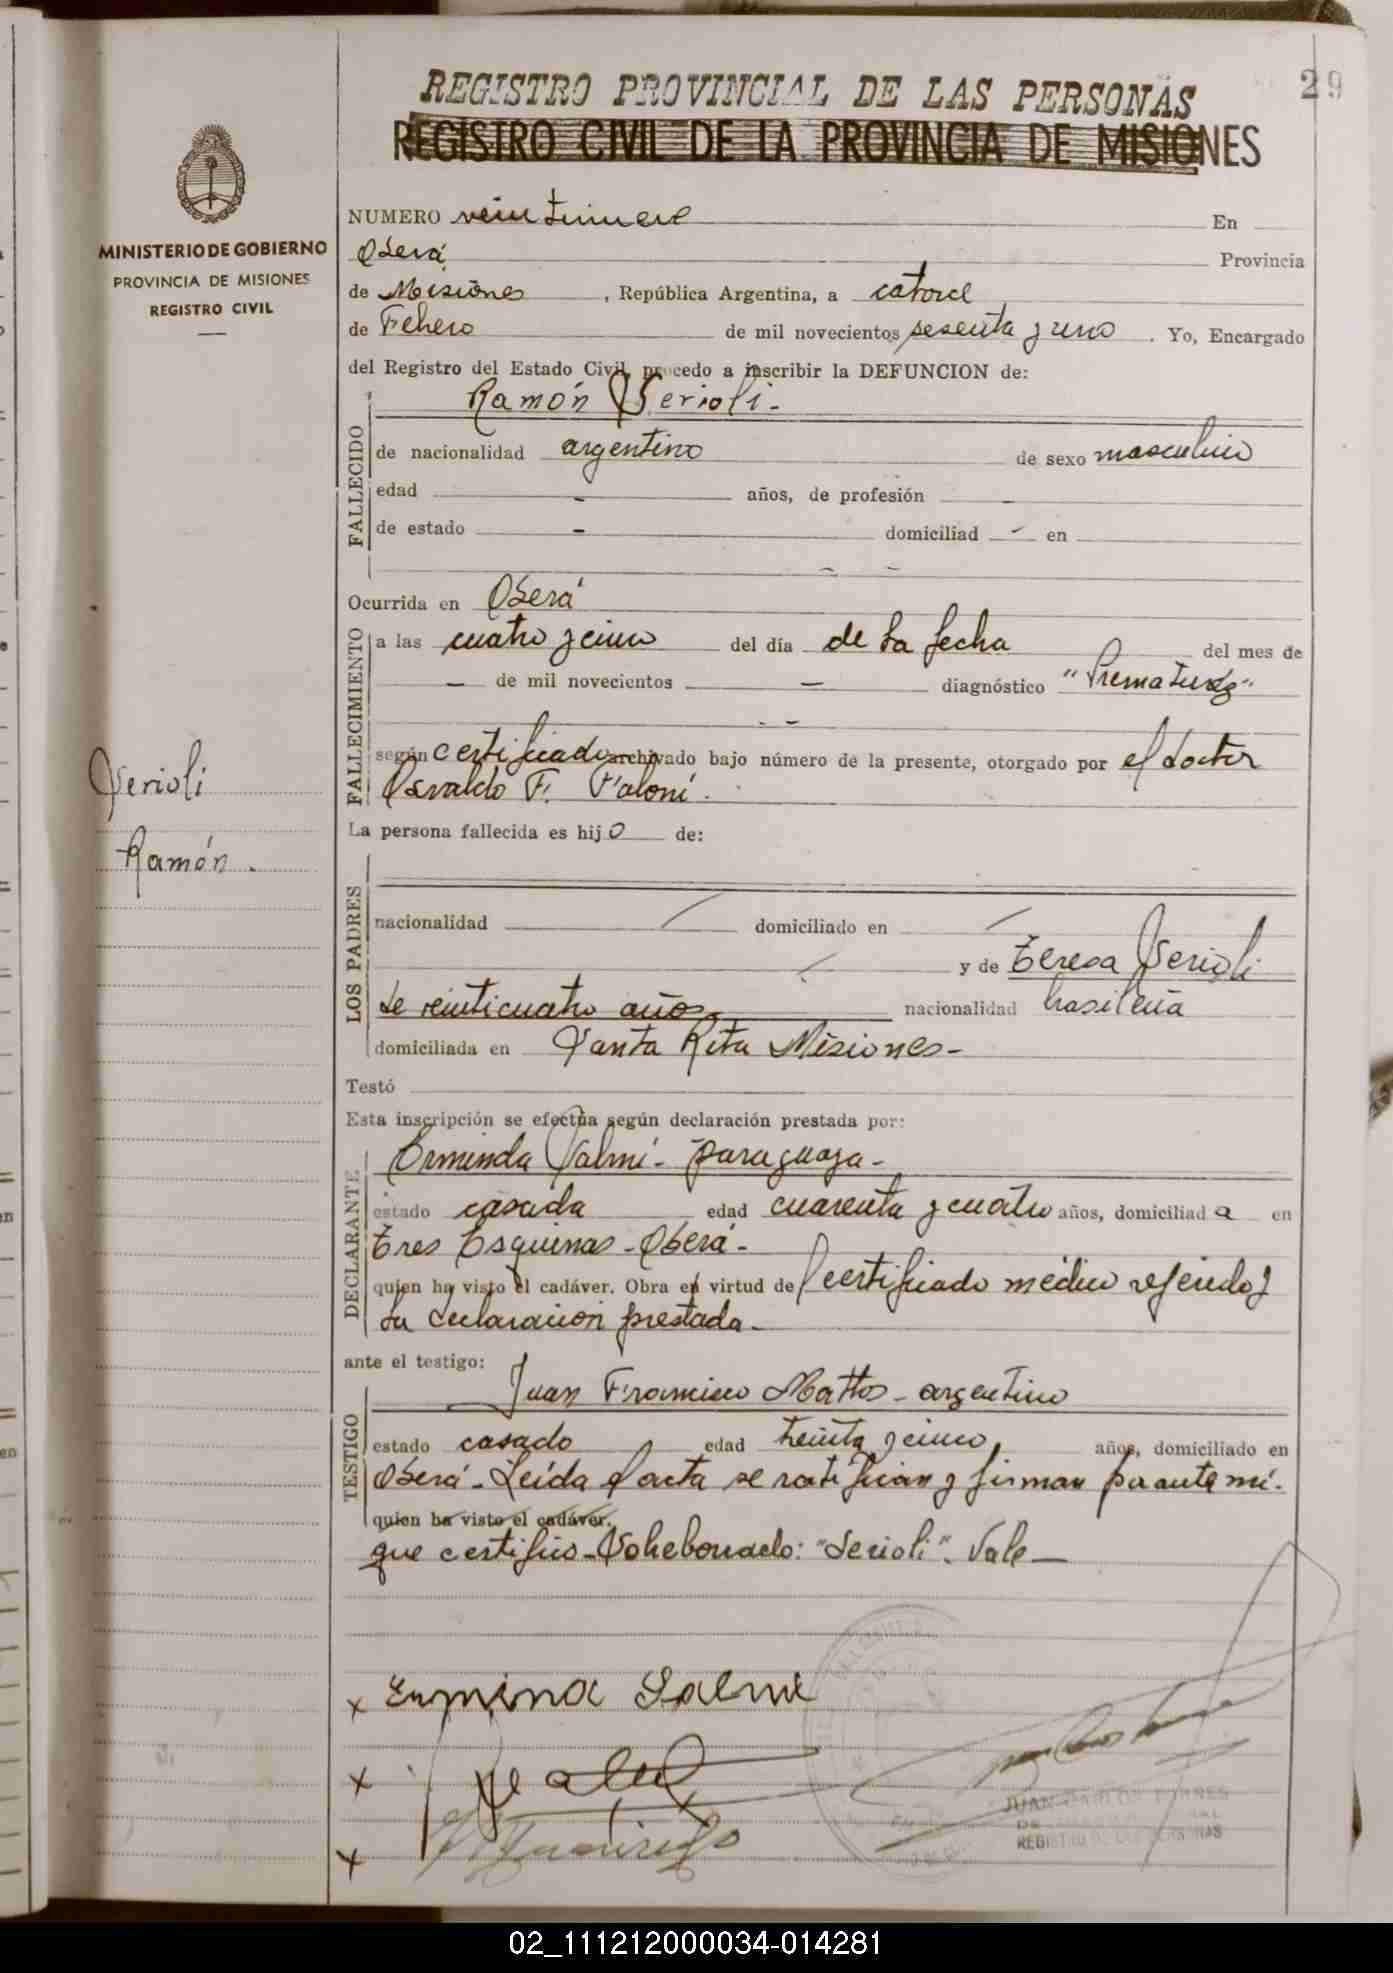 29
REGISTRO PROVINCIAL DE LAS PERSONAS
REGISTRO CIVIL DE LA PROVINCIA DE MISIONES
MINISTERIO DE GOBIERNO
PROVINCIA DE MISIONES
REGISTRO CIVIL
NUMERO veintinueve En
Oberá Provincia
de Misiones , República Argentina, a catorce
de Febrero de mil novecientos sesenta y uno . Yo, Encargado
del Registro del Estado Civil, procedo a inscribir la DEFUNCION de:
Ramón Serioli.-
FALLECIDO
de nacionalidad argentino de sexo masculino
edad - años, de profesión -
de estado - domiciliad - en
Ocurrida en Oberá
FALLECIMIENTO
a las cuatro y cinco del día de la fecha del mes de
- de mil novecientos - diagnóstico "Prematurez"
según certificado archivado bajo número de la presente, otorgado por el doctor
Osvaldo F. Paloni.
Serioli
Ramón.
La persona fallecida es hijo de:
LOS PADRES
nacionalidad / domiciliado en /
/ y de Teresa Serioli
de veinticuatro años nacionalidad brasileña
domiciliada en Santa Rita Misiones-
Testó
Esta inscripción se efectúa según declaración prestada por:
DECLARANTE
Erminda Salmi- paraguaya-
estado casada edad cuarenta y cuatro años, domiciliada en
Tres Esquinas-Oberá-
quien ha visto el cadáver. Obra en virtud del certificado médico referido y
la declaracion prestada-
ante el testigo:
TESTIGO
Juan Francisco Mattos- argentino
estado casado edad treinta y cinco años, domiciliado en
Oberá-Leida el acta se ratifican y firman por ante mi.
quien ha visto el cadáver.
que certifico-Sobreborrado: "Serioli". Vale-
x Ermina Salmi
x
x
JUAN CARLOS TORRES
REGISTRO DE LAS PERSONAS
02_111212000034-014281